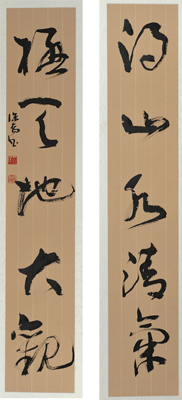 得山水清氣
極天地大觀